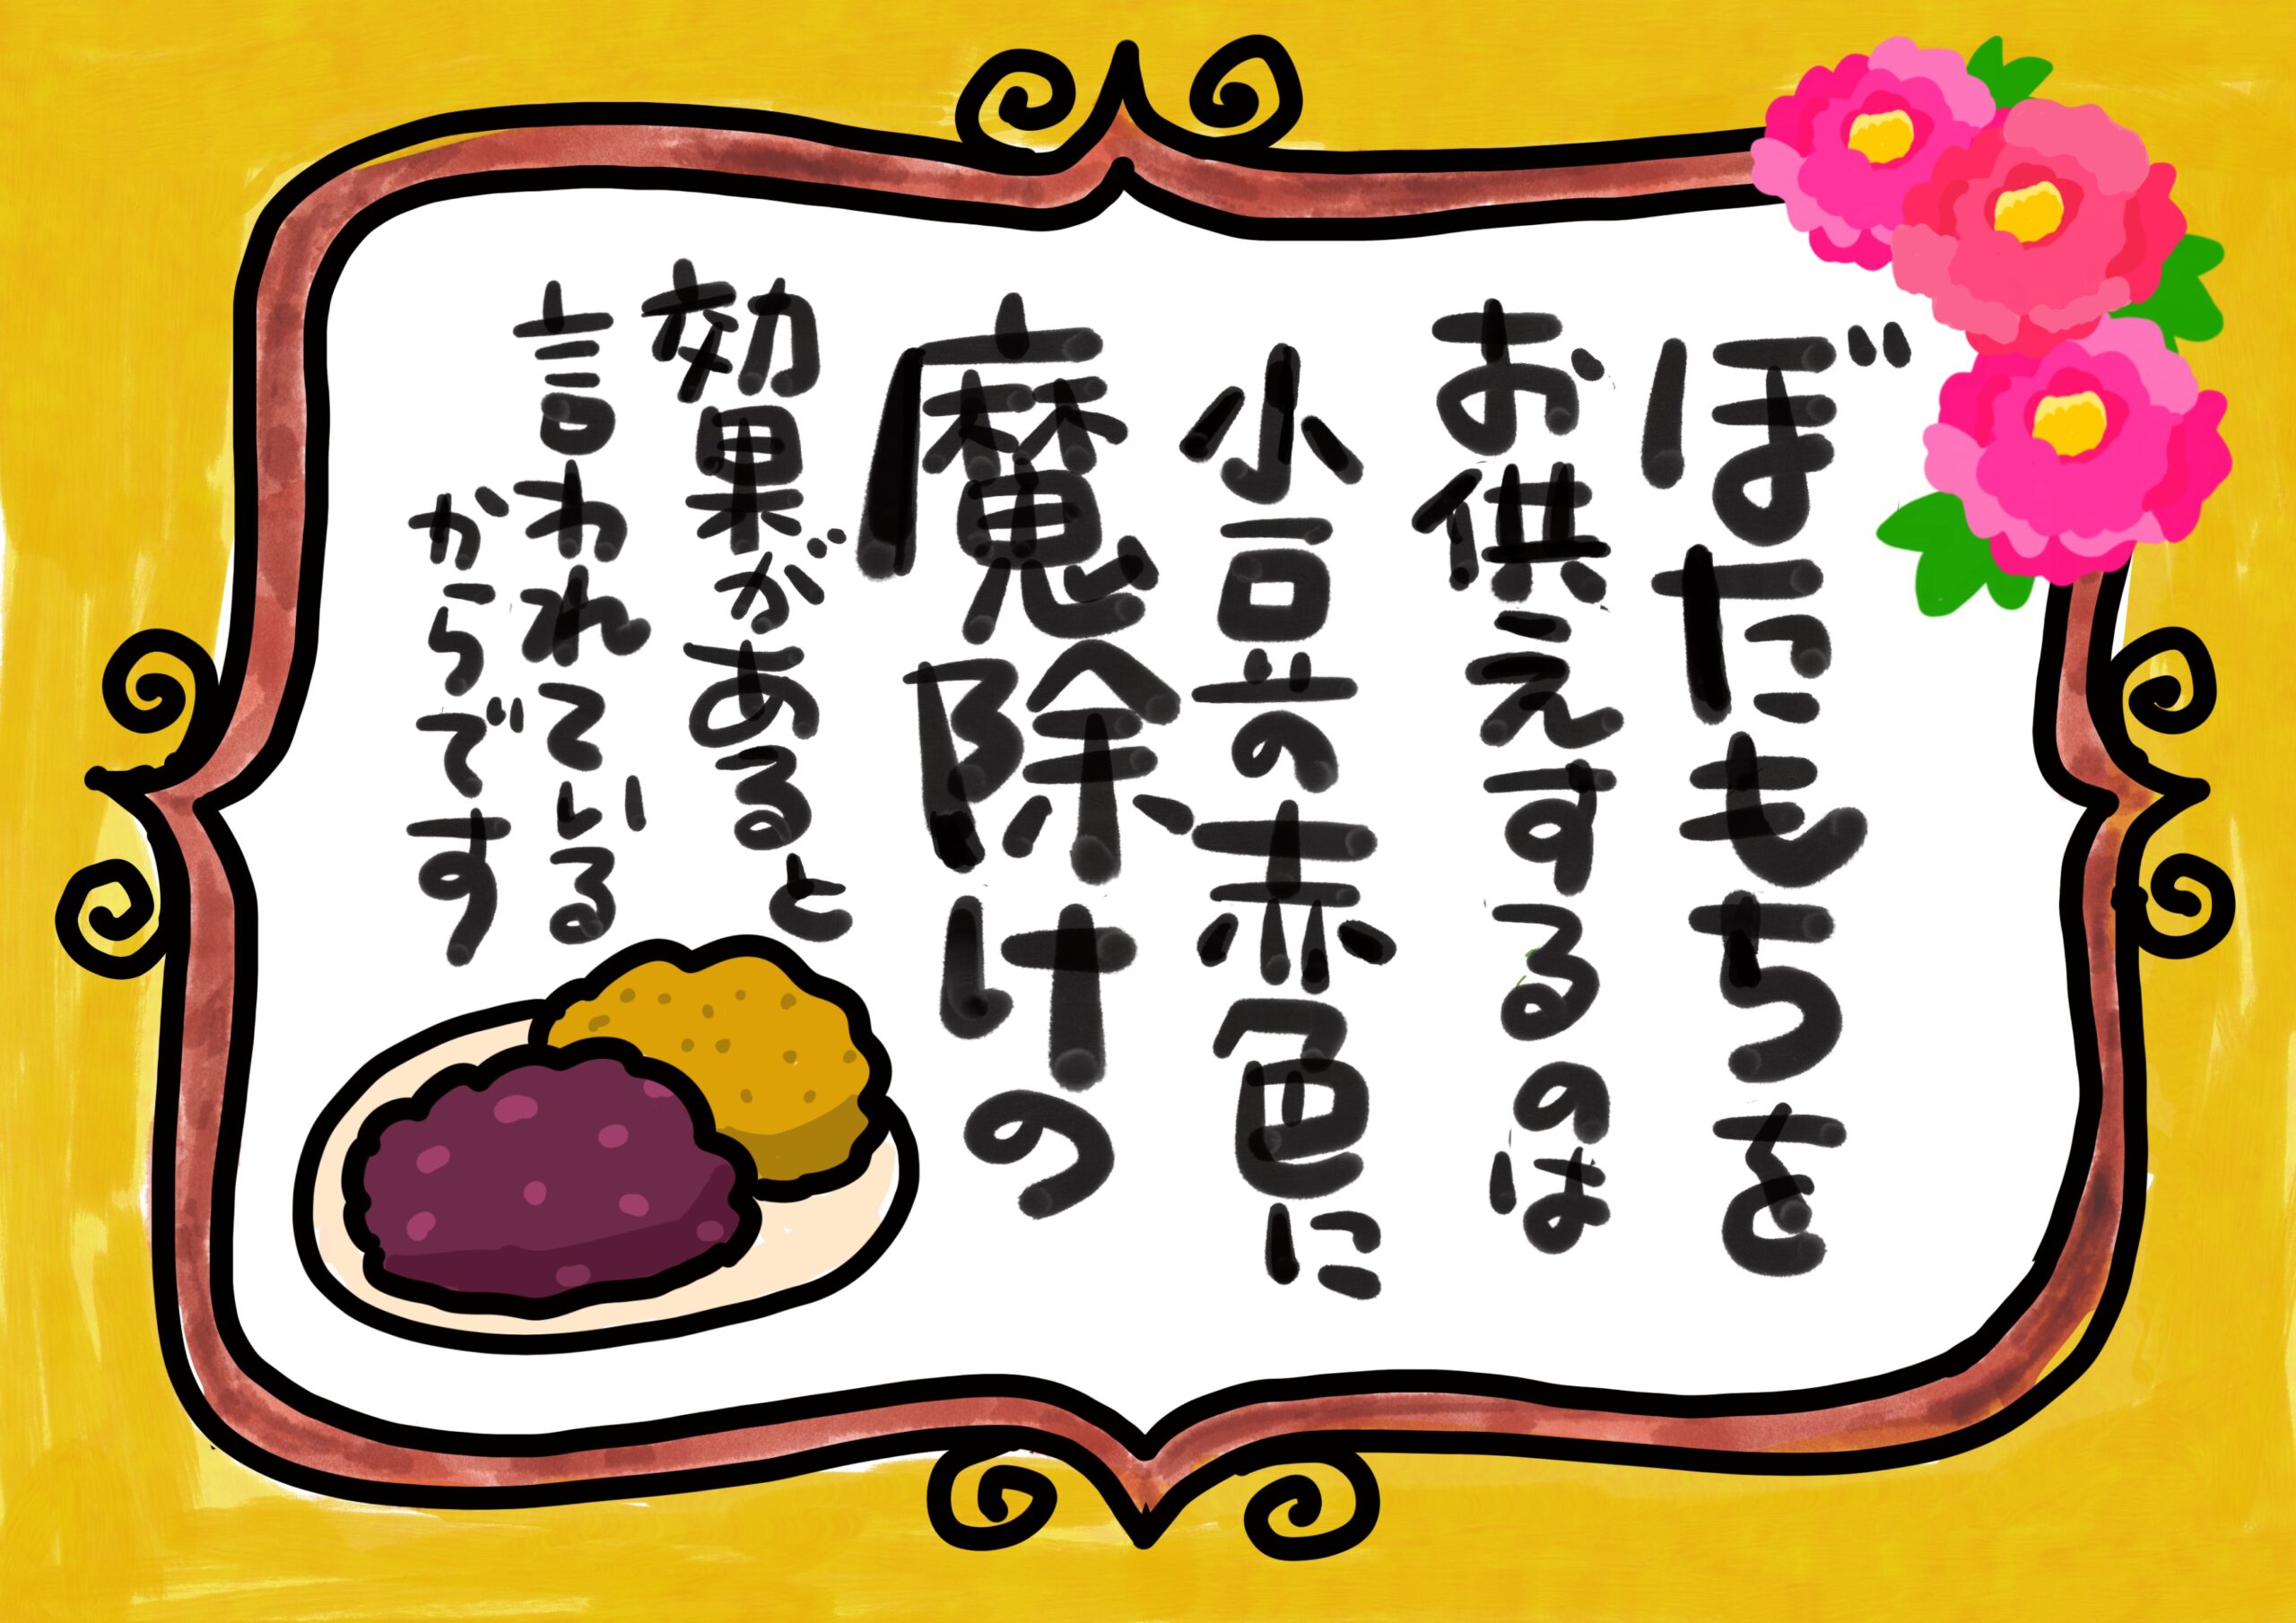 ぼたもちを
お供えするのは
小豆の赤色に
魔除けの
効果があると
言われている
からです